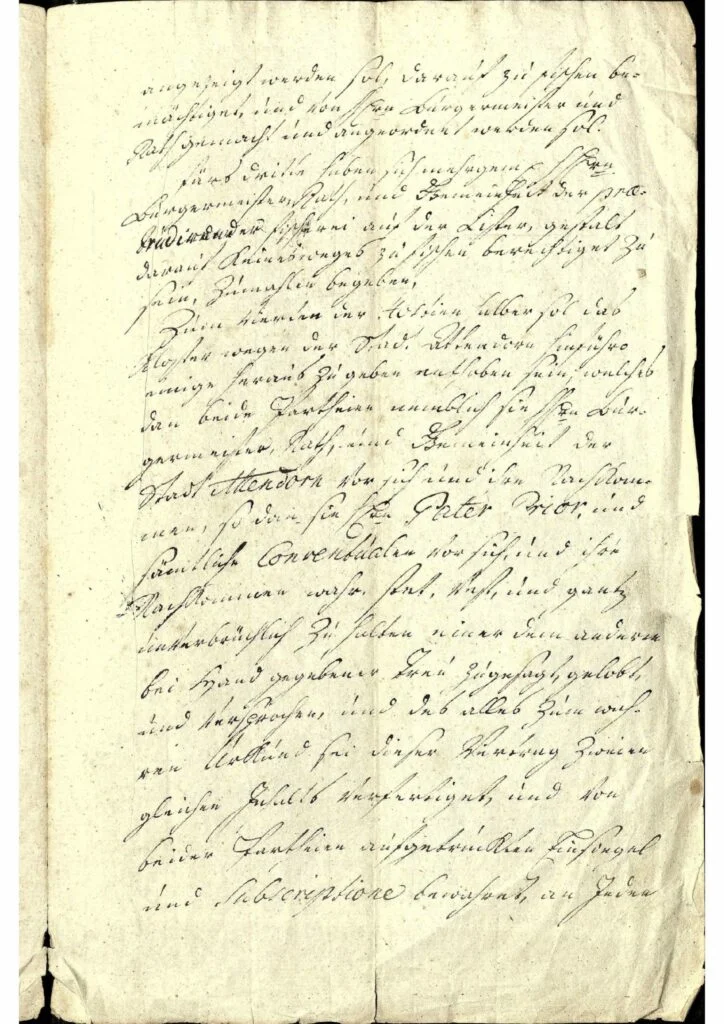 angezeigt werden sol, darauf zu fischen be-
mächtiget, und von Hhrn Bürgermeister und
Rath gemacht und angeordnet werden sol.
Fürs dritte haben sich mehrgem. Hhrn
Bürgermeister, Rath, und Gemeinheit der prae-
fischerei auf der Lister, gestalt
darauf keinesweges zu fischen berechtiget zu
sein, zumahlen begeben,
Zum vierden der halber sol das
Kloster wegen der Stadt Attendorn hinführo
einige heraus zu geben enthoben sein, welches
dan beide Partheien nemblich sie Hhrn Bür-
germeister, Rath, und Gemeinheit der
Stadt Attendorn vor sich und ihre Nachkom-
men, so dan sie Hhrn Pater Prior, und
sämtliche Conventualen vor sich, und ihre
Nachkommen wahr, stet, vest, und gantz
unverbrüchlich zu halten einer dem anderen
bei Hand gegebener Treü zugesagt, gelobt,
und versprochen, und des alles zum wah-
ren Urkund sei dieser Vertrag zweien
gleichen Inhalts verfertiget, und von
beider Partheien aufgetrückten Einsiegel
und Subscriptione bewahret, an Jeden